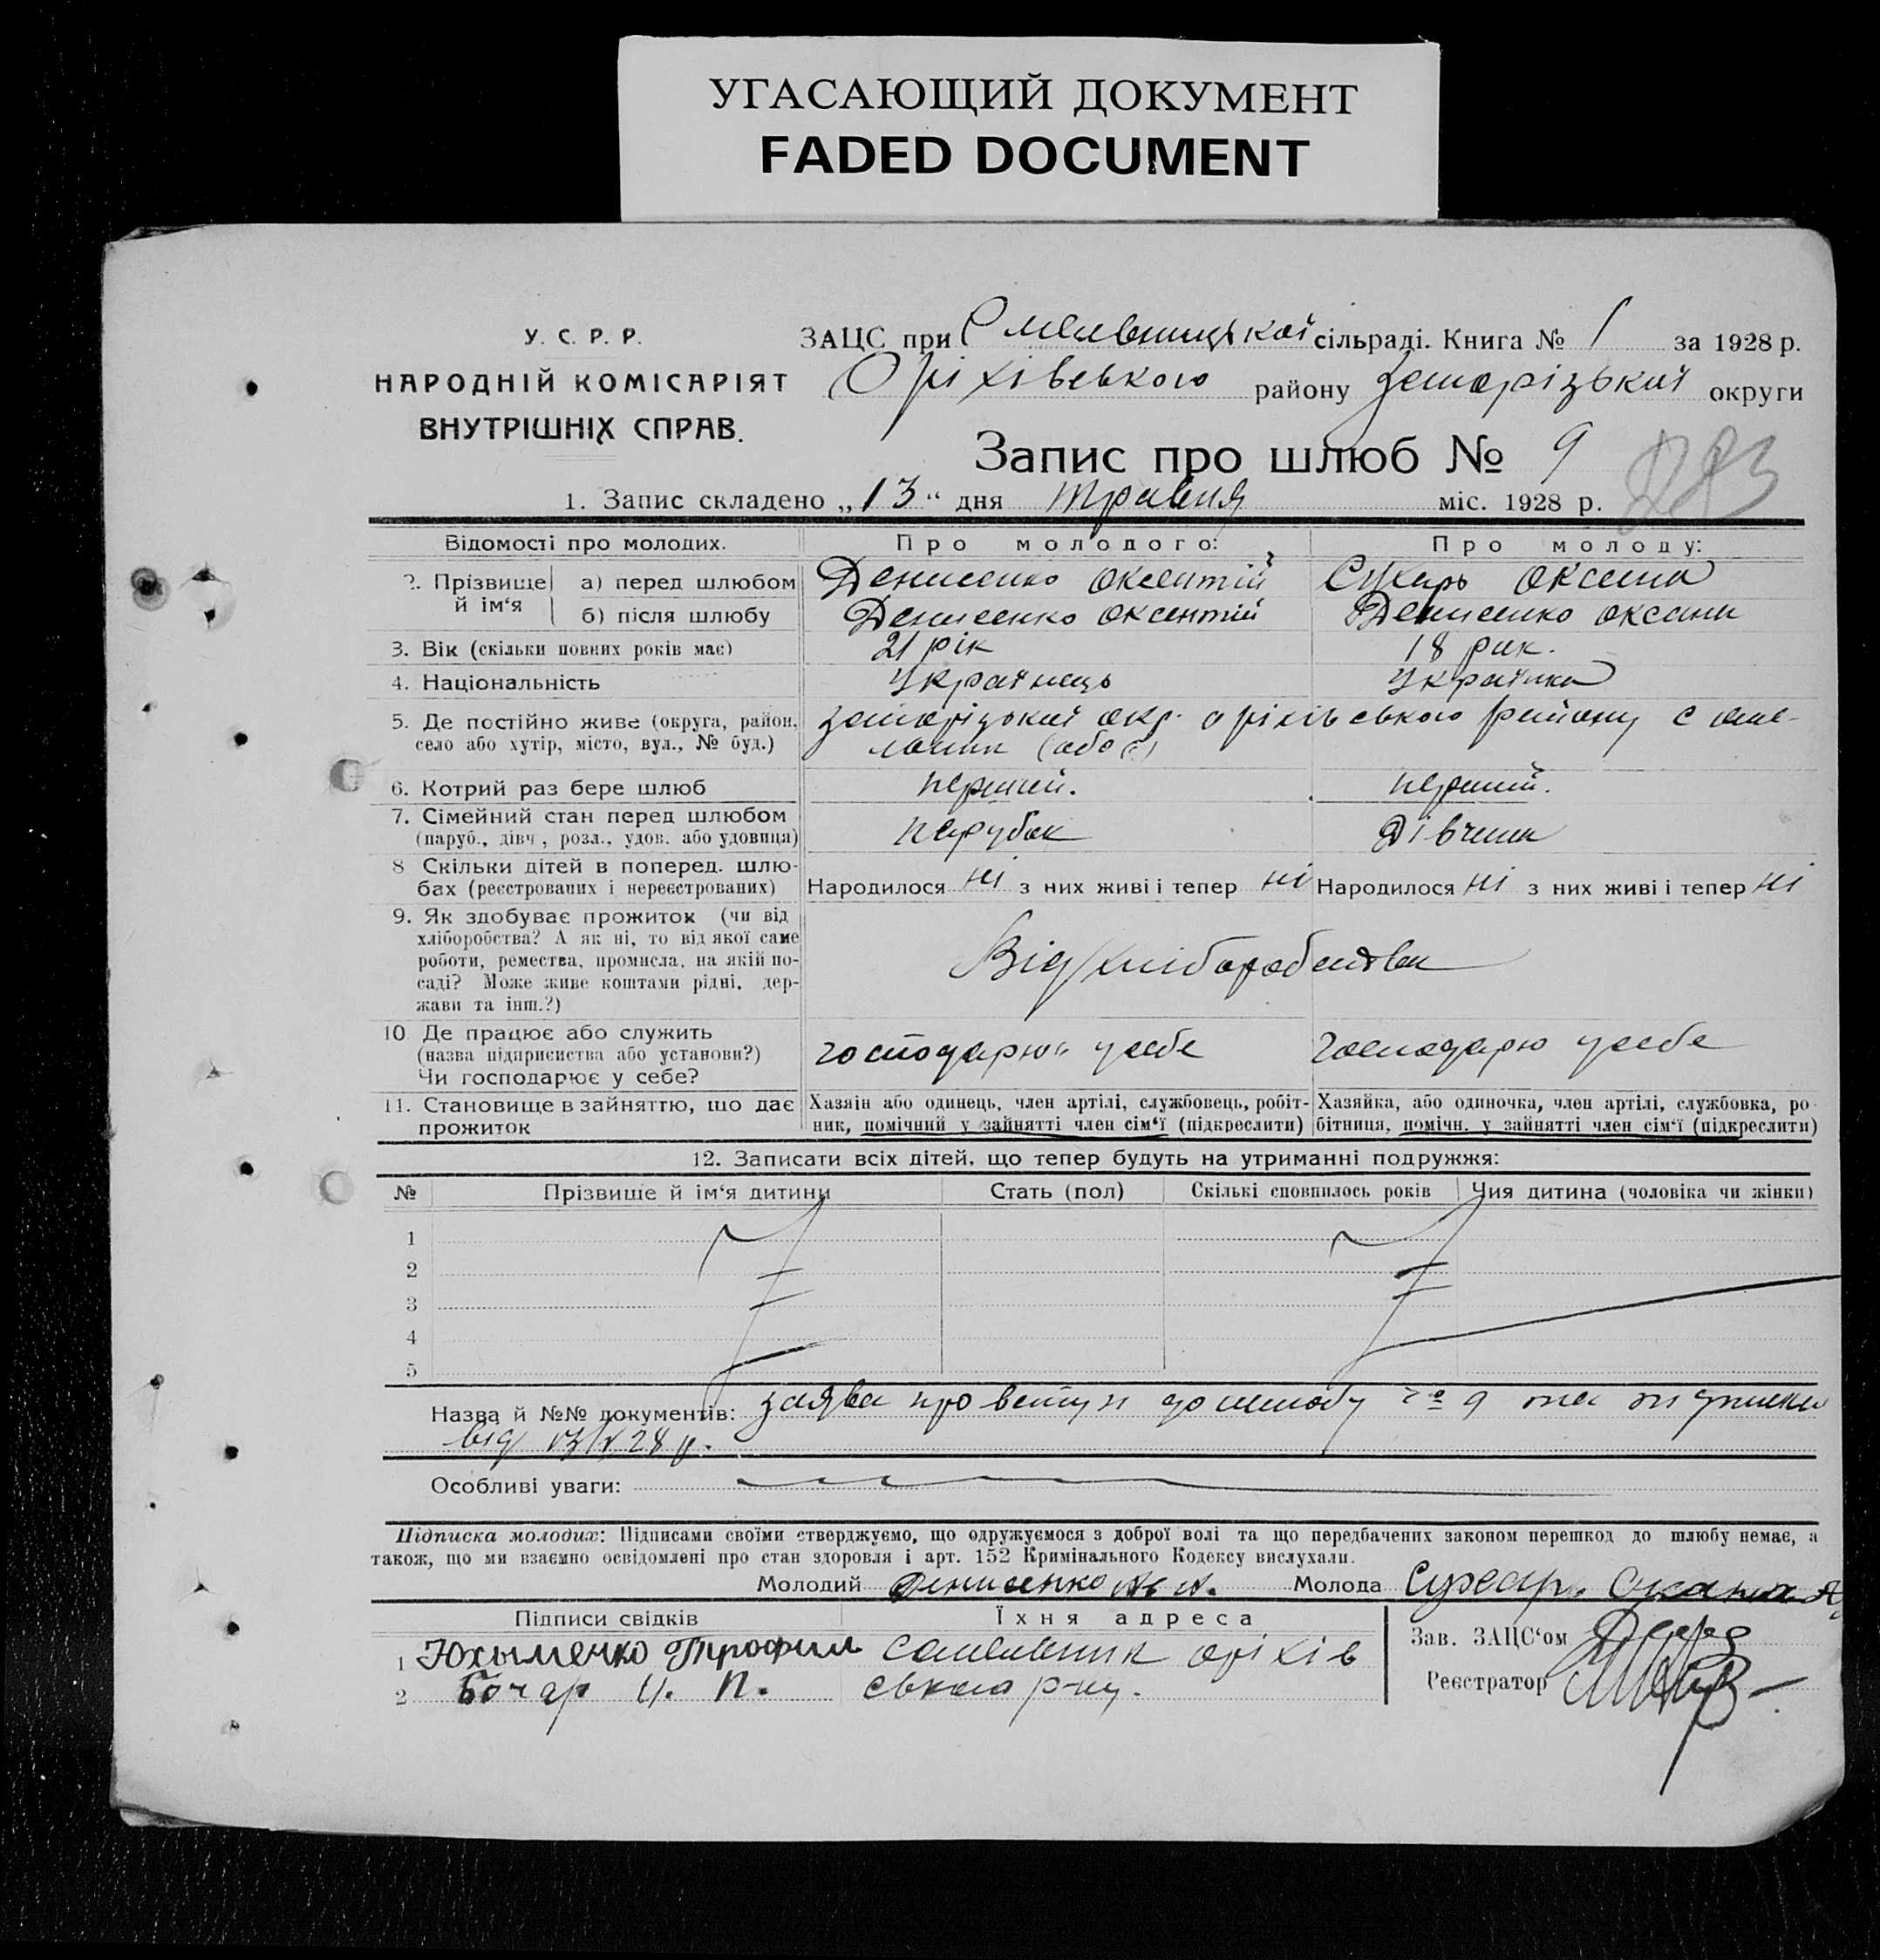 УГАСАЮЩИЙ ДОКУМЕНТ
FADED DOCUMENT
У. С. Р. Р.
НАРОДНІЙ КОМІСАРІЯТ
ВНУТРІШНІХ СПРАВ.
ЗАЦС при сільраді. Книга № 1 за 1928 р.
Оріхівського району Запорізької округи
Запис про шлюб № 9
1. Запис складено „13“ дня травня міс. 1928 р.
Відомості про молодих. Про молодого: Про молоду:
2. Прізвище й ім‘я а) перед шлюбом Денисенко Оксентій Сухарь Оксана
б) після шлюбу Денисенко Оксентій Денисенко Оксана
3. Вік (скільки повних років має) 21 рік 18 рик.
4. Національність Українець Українка
5. Де постійно живе (округа, район, запорізької окр. оріхівського району с
село або хутір, місто, вул., № буд.) (обоє)
6. Котрий раз бере шлюб перший. перший.
7. Сімейний стан перед шлюбом парубок Дівчина
(паруб., дівч., розл., удов. або удовиця)
8 Скільки дітей в поперед. шлю-
бах (реєстрованих і нереєстрованих) Народилося ні з них живі і тепер ні Народилося ні з них живі і тепер ні
9. Як здобуває прожиток (чи від
хліборобства? А як ні, то від якої саме
роботи, ремества, промисла, на якій по-
саді? Може живе коштами рідні, дер-
жави та інш.?) Від хліборобства
10 Де працює або служить
(назва підприємства або установи?) господарює усебе господарю усебе
Чи господарює у себе?
11. Становище в зайняттю, що дає Хазяін або одинець, член артілі, службовець, робіт- Хазяйка, або одиночка, член артілі, службовка, ро-
прожиток ник, помічний у зайнятті член сім‘ї (підкреслити) бітниця, помічн. у зайнятті член сім‘ї (підкреслити)
12. Записати всіх дітей, що тепер будуть на утриманні подружжя:
№ Прізвище й ім‘я дитини Стать (пол) Скількі сповнилось років Чия дитина (чоловіка чи жінки)
1
2
3
4
5
Назва й №№ документів: заява про вступ до шлюбу 9 та підписки
від 13/V 28 р.
Особливі уваги:
Підписка молодих: Підписами своїми стверджуємо, що одружуємося з доброї волі та що передбачених законом перешкод до шлюбу немає, а
також, що ми взаємно освідомлені про стан здоровля і арт. 152 Кримінального Кодексу вислухали.
Молодий Денисенко Молода Сухар.
Підписи свідків Їхня адреса
Зав. ЗАЦС‘ом
1 Юхыменко Трофим оріхів
Реєстратор
2 Бочар И. П. ського р-ну.